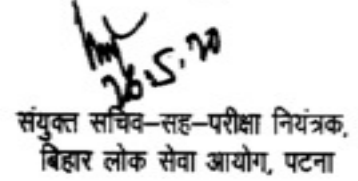 26.5.20
संयुक्त सचिव–सह–परीक्षा नियंत्रक,
बिहार लोक सेवा आयोग, पटना